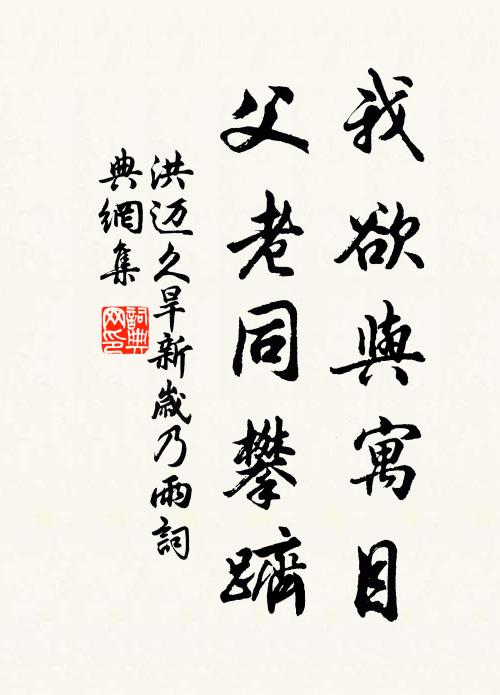 我欲與寓目
父老同攀躋
洪迈久旱新歲乃雨詞
典網集
詞典
网印